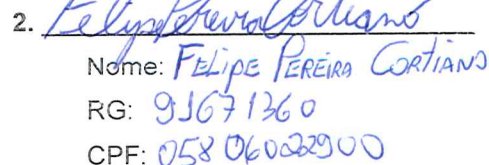 2. Felipe Pereira Cortiano
Nome: FELIPE PEREIRA CORTIANO
RG: 91671360
CPF: 05806022900